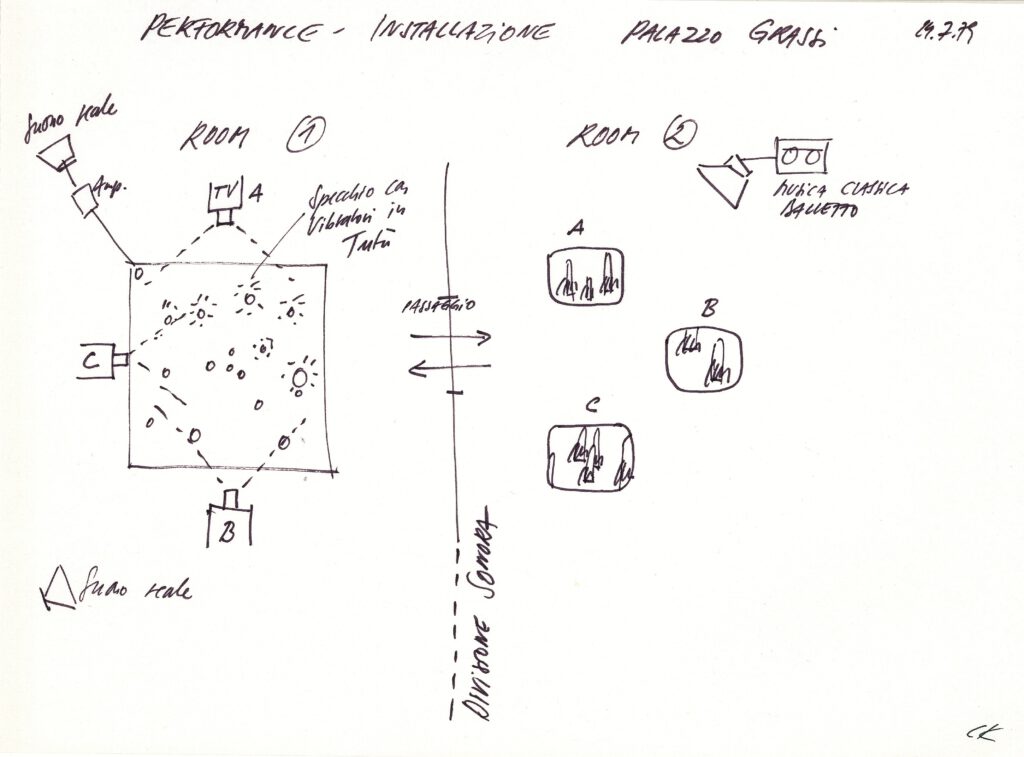 PERFORMANCE - INSTALLAZIONE PALAZZO GRASSI 19.7.79
Suono reale
Amp.
ROOM 1
TV A
Specchio con
Vibratori in
Tutù
C
B
Suono reale
PASSAGGIO
DIVISIONE SONORA
ROOM 2
MUSICA CLASSICA
BALLETTO
A
B
C
CK